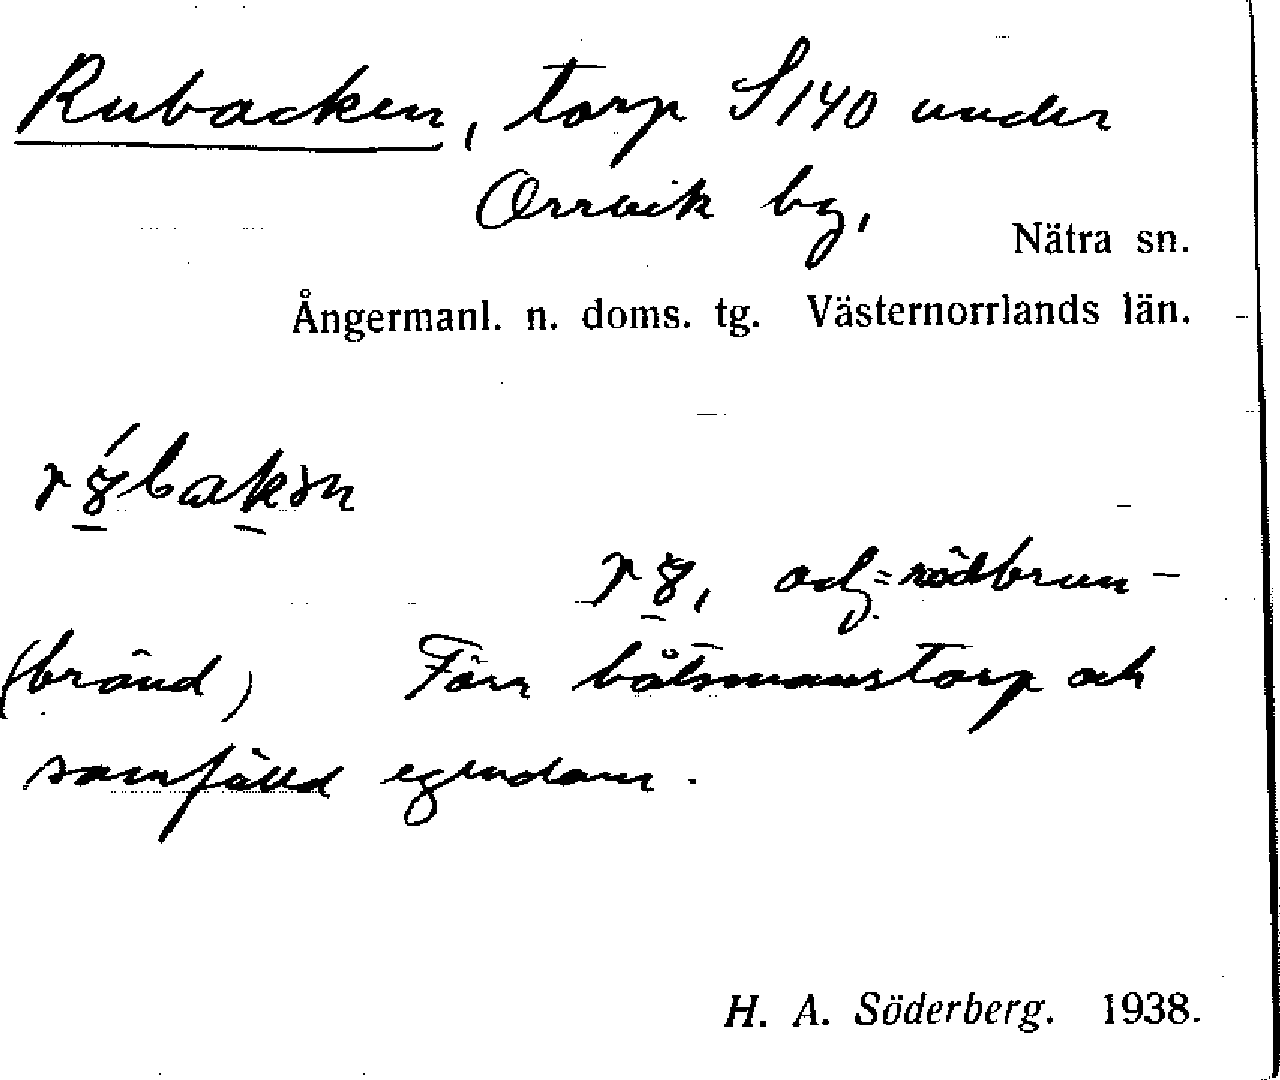 Rubacken, torp S 140 under
Orrvik by,
Nätra sn.
Ångermanl. n. doms. tg. Västernorrlands län.
adj = rödbrun-
(bränd) Förr båtsmanstorp och
samfälld egendom.
H. A. Söderberg. 1938.